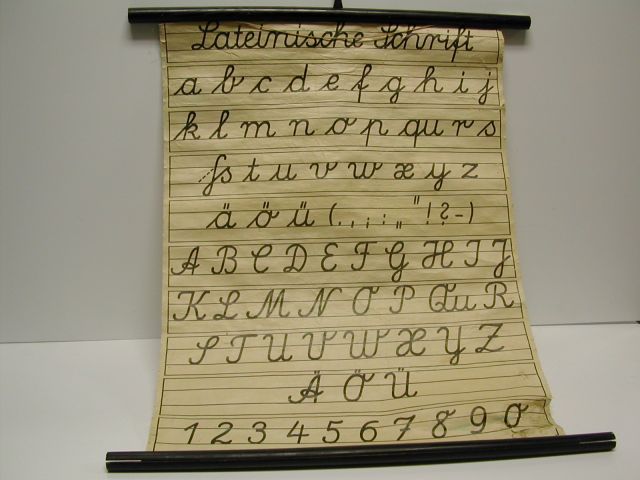 Lateinische Schrift
a b c d e f g h i j
k l m n o p qu r s
ß t u v w x y z
ä ö ü (. , ; : „ " ! ? - )
A B C D E F G H I J
K L M N O P Qu R
S T U V W X Y Z
Ä Ö Ü
1 2 3 4 5 6 7 8 9 0